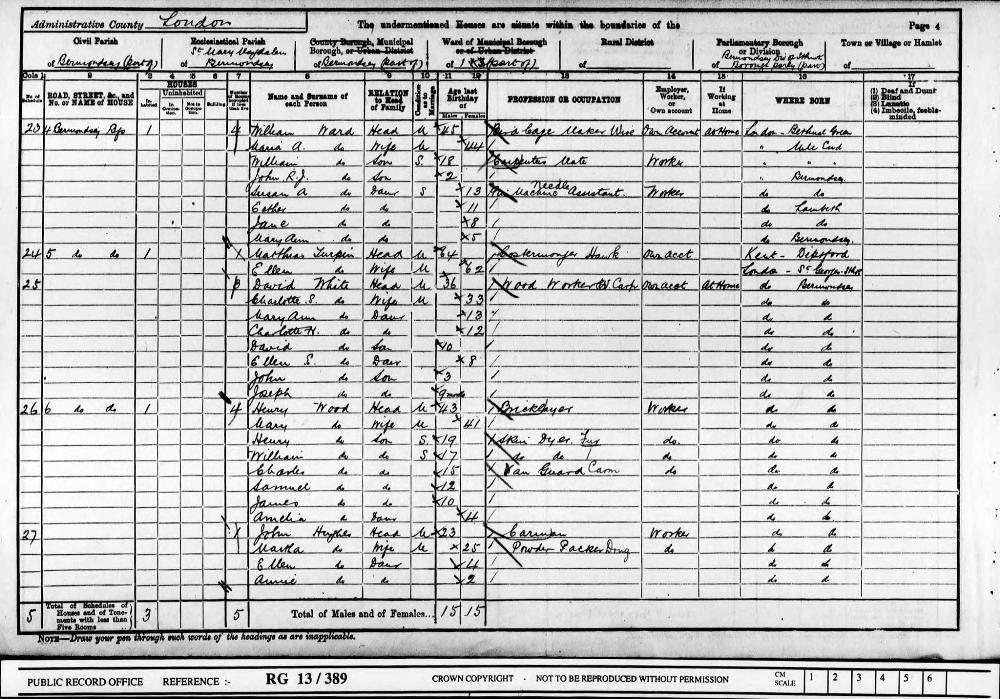 Administrative County London The undermentioned Houses are situate within the boundaries of the Page 4
Civil Parish Ecclesiastical Parish County Borough, Municipal Borough, or Urban District Ward of Municipal Borough or of Urban District Rural District Parliamentary Borough or Division Town or Village or Hamlet
of Bermondsey (part of) of St Mary Magdalen Bermondsey of Bermondsey (part of) of 1 & 3 (part of) of of of
Cols 1 2 3 4 5 6 7 8 9 10 11 12 13 14 15 16 17
No. of Schedule ROAD, STREET, &c., and No. or NAME of HOUSE HOUSES Inhabited Uninhabited In Occupation Not in Occupation Building Number of Rooms occupied if less than five Name and Surname of each Person RELATION to Head of Family Condition as to Marriage Age last Birthday of Males Females PROFESSION OR OCCUPATION Employer, Worker, or Own account If Working at Home WHERE BORN (1) Deaf and Dumb (2) Blind (3) Lunatic (4) Imbecile, feeble-minded
23 4 Bermondsey Bgs 1 4 William Ward Head M 45 Bird Cage Maker Wire Own Account At Home London - Bethnal Green
Maria A. do Wife M 44 " Mile End
William do Son S 18 Carpenters Mate Worker " "
John R.J. do Son 2 " Bermondsey
Susan A do Daur S 13 Machine Needle Assistant Worker do do
Esther do do 11 do Lambeth
Jane do do 8 do do
Mary Ann do do 5 do Bermondsey
24 5 do do 1 Matthias Turpin Head M 64 Costermonger Hawk Own acct Kent - Deptford
Ellen do Wife M 62 London
25 David White Head M 36 Wood Worker Carp Own acct At Home do Bermondsey
Charlotte S. do Wife M 33 do do
Mary Ann do Daur 13 do do
Charlotte H. do do 12 do do
David do Son 10 do do
Ellen S. do Daur 8 do do
John do Son 3 do do
Joseph do do 9 mos do do
26 6 do do 1 4 Henry Wood Head M 43 Bricklayer Worker do do
Mary do Wife M 41 do do
Henry do Son S 19 Skin Dyer Fur do do do
William do do S 17 do do do do do
Charles do do 15 Van Guard Carm do do do
Samuel do do 12 do do
James do do 10 do do
Amelia do Daur 4 do do
27 John Hughes Head M 23 Carman Worker do do
Martha do Wife M 25 Powder Packer Drug do do do
Ellen do Daur 4 do do
Annie do do 2 do do
5 Total of Schedules of Houses and of Tenements with less than Five Rooms 3 5 Total of Males and of Females... 15 15
NOTE—Draw your pen through such words of the headings as are inapplicable.
PUBLIC RECORD OFFICE REFERENCE :- RG 13/389 CROWN COPYRIGHT - NOT TO BE REPRODUCED WITHOUT PERMISSION CM SCALE 1 2 3 4 5 6